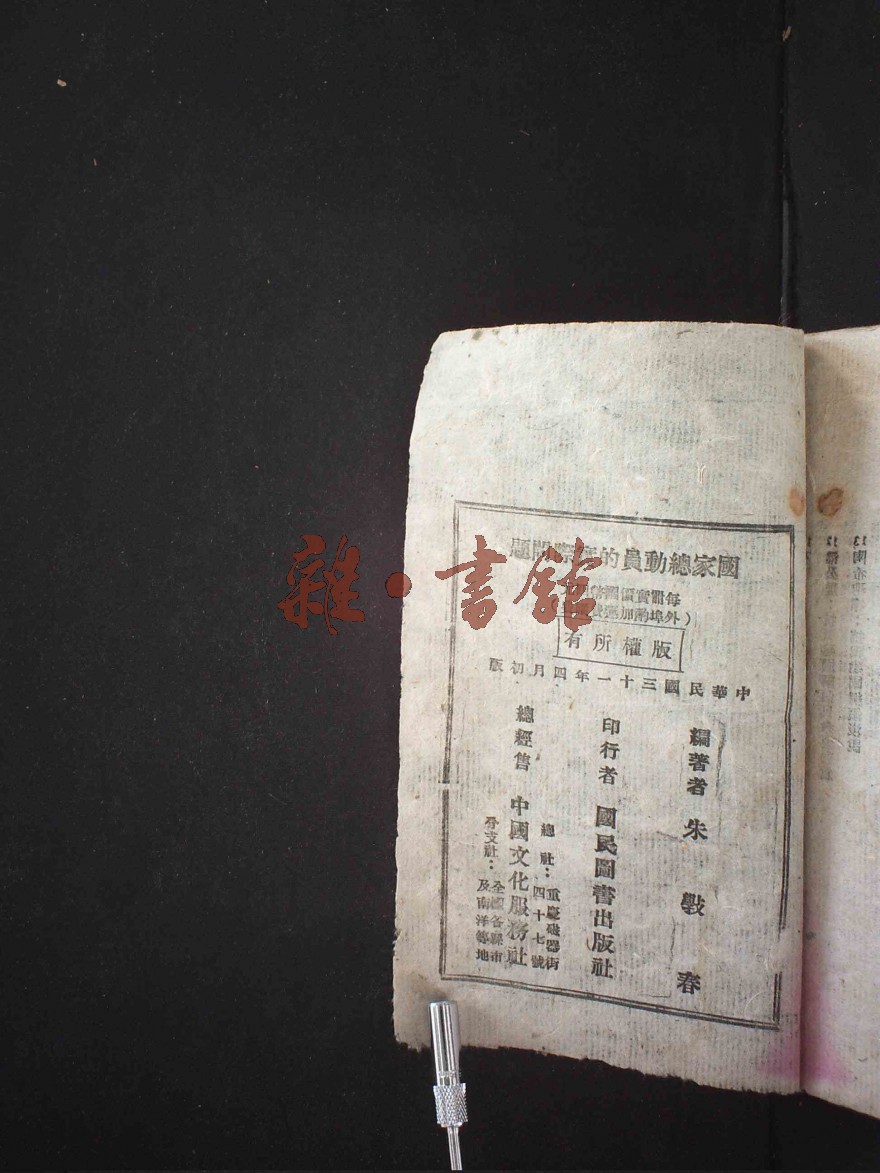 國家總動員的實際問題
每冊實價國幣
（外埠酌加運
版權所有
中華民國三十一年四月初版
編著者 朱毅春
印行者 國民圖書出版社
總經售 中國文化服務社
總社：重慶磁器街四十七號
分支社：全國各縣市及南洋等地
雜·書館